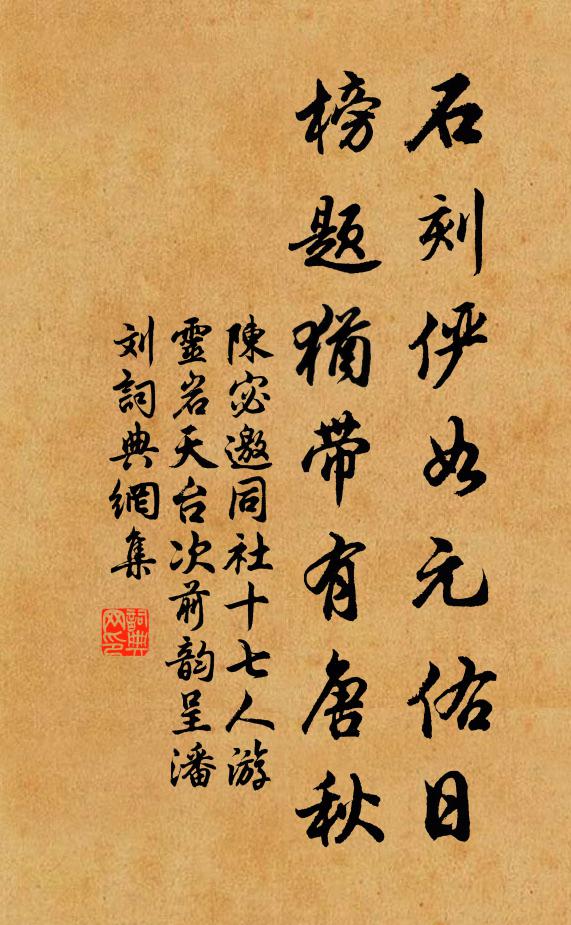 石刻俨如元佑日
榜题犹带有唐秋
陳宓邀同社十七人游
靈岩天台次前韵呈潘
刘詞典網集
詞典
网印